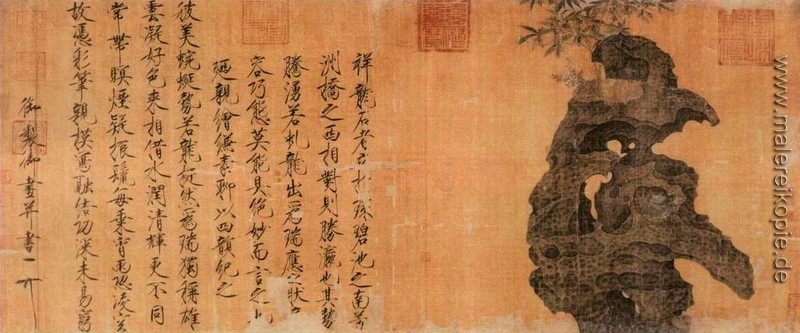 祥龍石者立於環碧池之南芳
洲橋之西相對則勝瀛也其勢
騰湧若虬龍出為瑞應之狀奇
容巧態莫能具絕妙而言之也
廼親繪縑素聊以四韻紀之
彼美蜿蜒勢若龍挺然為瑞獨稱雄
雲凝好色來相借水潤清輝更不同
常帶暝煙疑振鬣每乘宵雨恐凌空
故憑彩筆親模寫融結功深未易窮
御製御畫并書
www.malereikopie.de